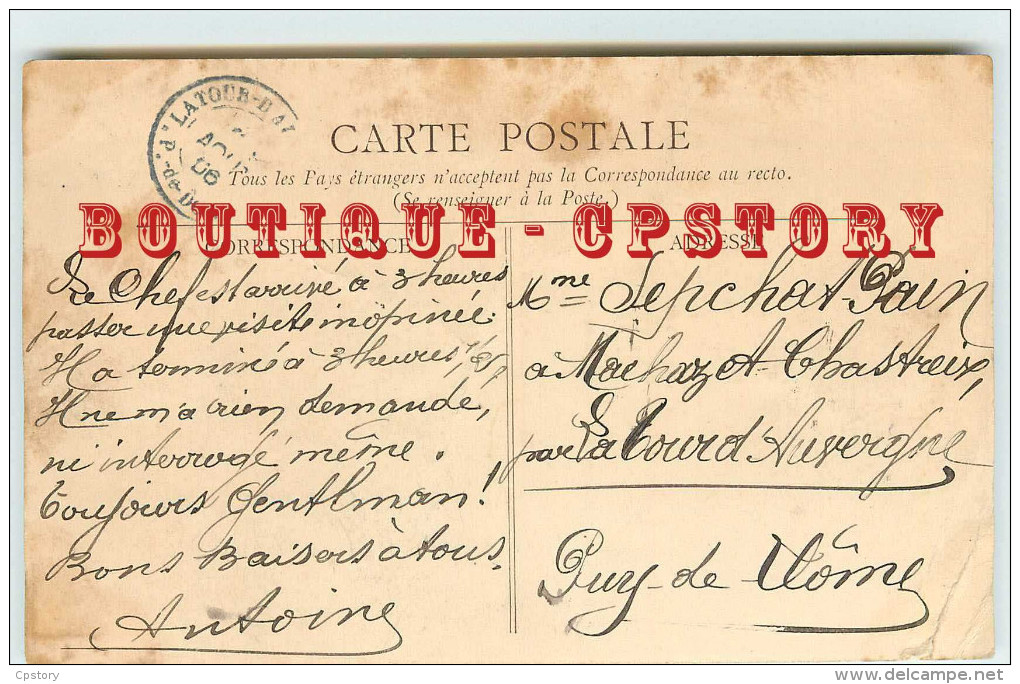 LATOUR-D'A
AOUT
06
P.-de-D
CARTE POSTALE
Tous les Pays étrangers n'acceptent pas la Correspondance au recto.
(Se renseigner à la Poste.)
BOUTIQUE - CPSTORY
CORRESPONDANCE
Le Chef est arrivé à 3 heures
passer une visite inopinée.
Il a terminé à 3 heures
Il ne m'a rien demandé,
ni interrogé même.
Toujours Gentlman!
Bons Baisers à tous.
Antoine
ADRESSE
Mme Sepchat-Pain
à Machazot-Chastreix,
par La Tour d'Auvergne
Puy-de-Dôme
Cpstory
www.delcampe.net